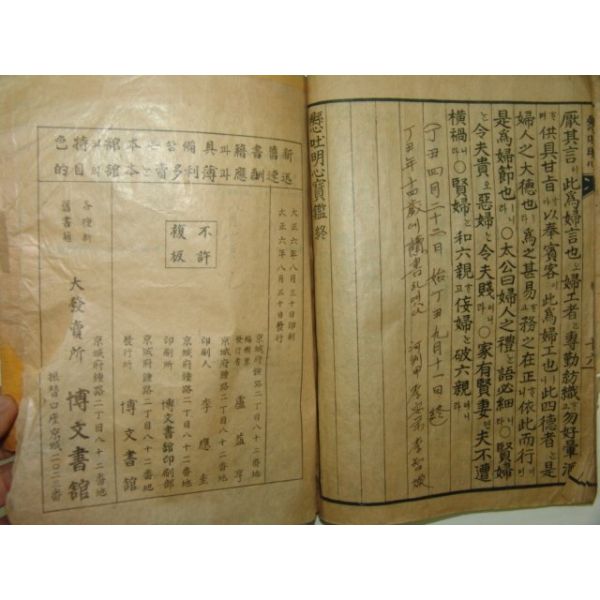 厭其言니라此爲婦言也오婦工者는專勤紡織고勿好暈酒고
供具甘旨야以奉賓客이此爲婦工也니此四德者는是
婦人之大德也라爲之甚易고務之在正니依此而行면
是爲婦節也니라○太公曰婦人之禮는語必細니라○賢婦
는令夫貴고惡婦는令夫賤이니라○家有賢妻면夫不遭
橫禍니라○賢婦는和六親고佞婦는破六親이니라
懸吐明心寶鑑終
(丁丑四月二十二日始丁丑九月十一日終)
丁丑年 十四歲에
新舊書籍과具備며本舘은本舘의特色
迅速酬應과簿利多賣目的
大正六年八月三十日印刷
大正六年八月三十日發行
不許
複板
京城府鍾路二丁目八十二番地
編輯兼發行者 盧益亨
京城府鍾路二丁目八十二番地
印刷人 李應奎
京城府鍾路二丁目八十二番地
印刷所 博文書舘印刷部
京城府鍾路二丁目八十二番地
發行所 博文書舘
各種新舊書籍
大發賣所 博文書舘
京城府鍾路二丁目八十二番地
振替口座京城二〇二三番